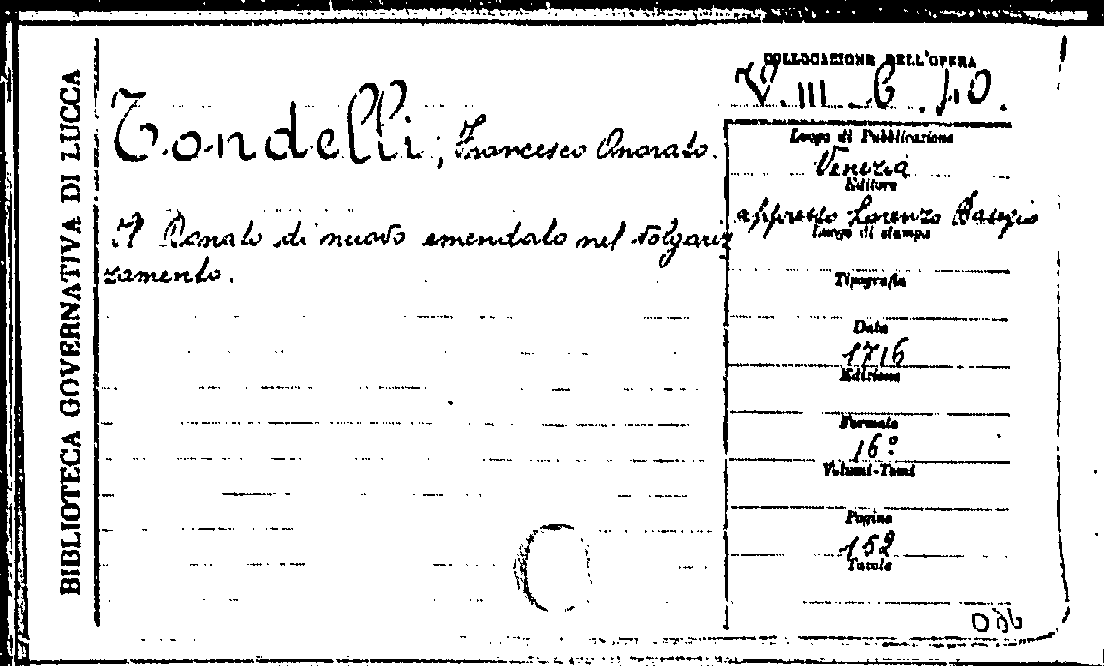 BIBLIOTECA GOVERNATIVA DI LUCCA
COLLOCAZIONE DELL'OPERA
V. III 6. 10.
Tondelli, Francesco Onorato.
Il Donato di nuovo emendato nel volgariz
zamento.
Luogo di Pubblicazione
Venezia
Editore
appresso Lorenzo Basegio
Luogo di stampa
Tipografia
Data
1716
Edizione
Formato
16°
Volumi-Tomi
Pagine
152
Tavole